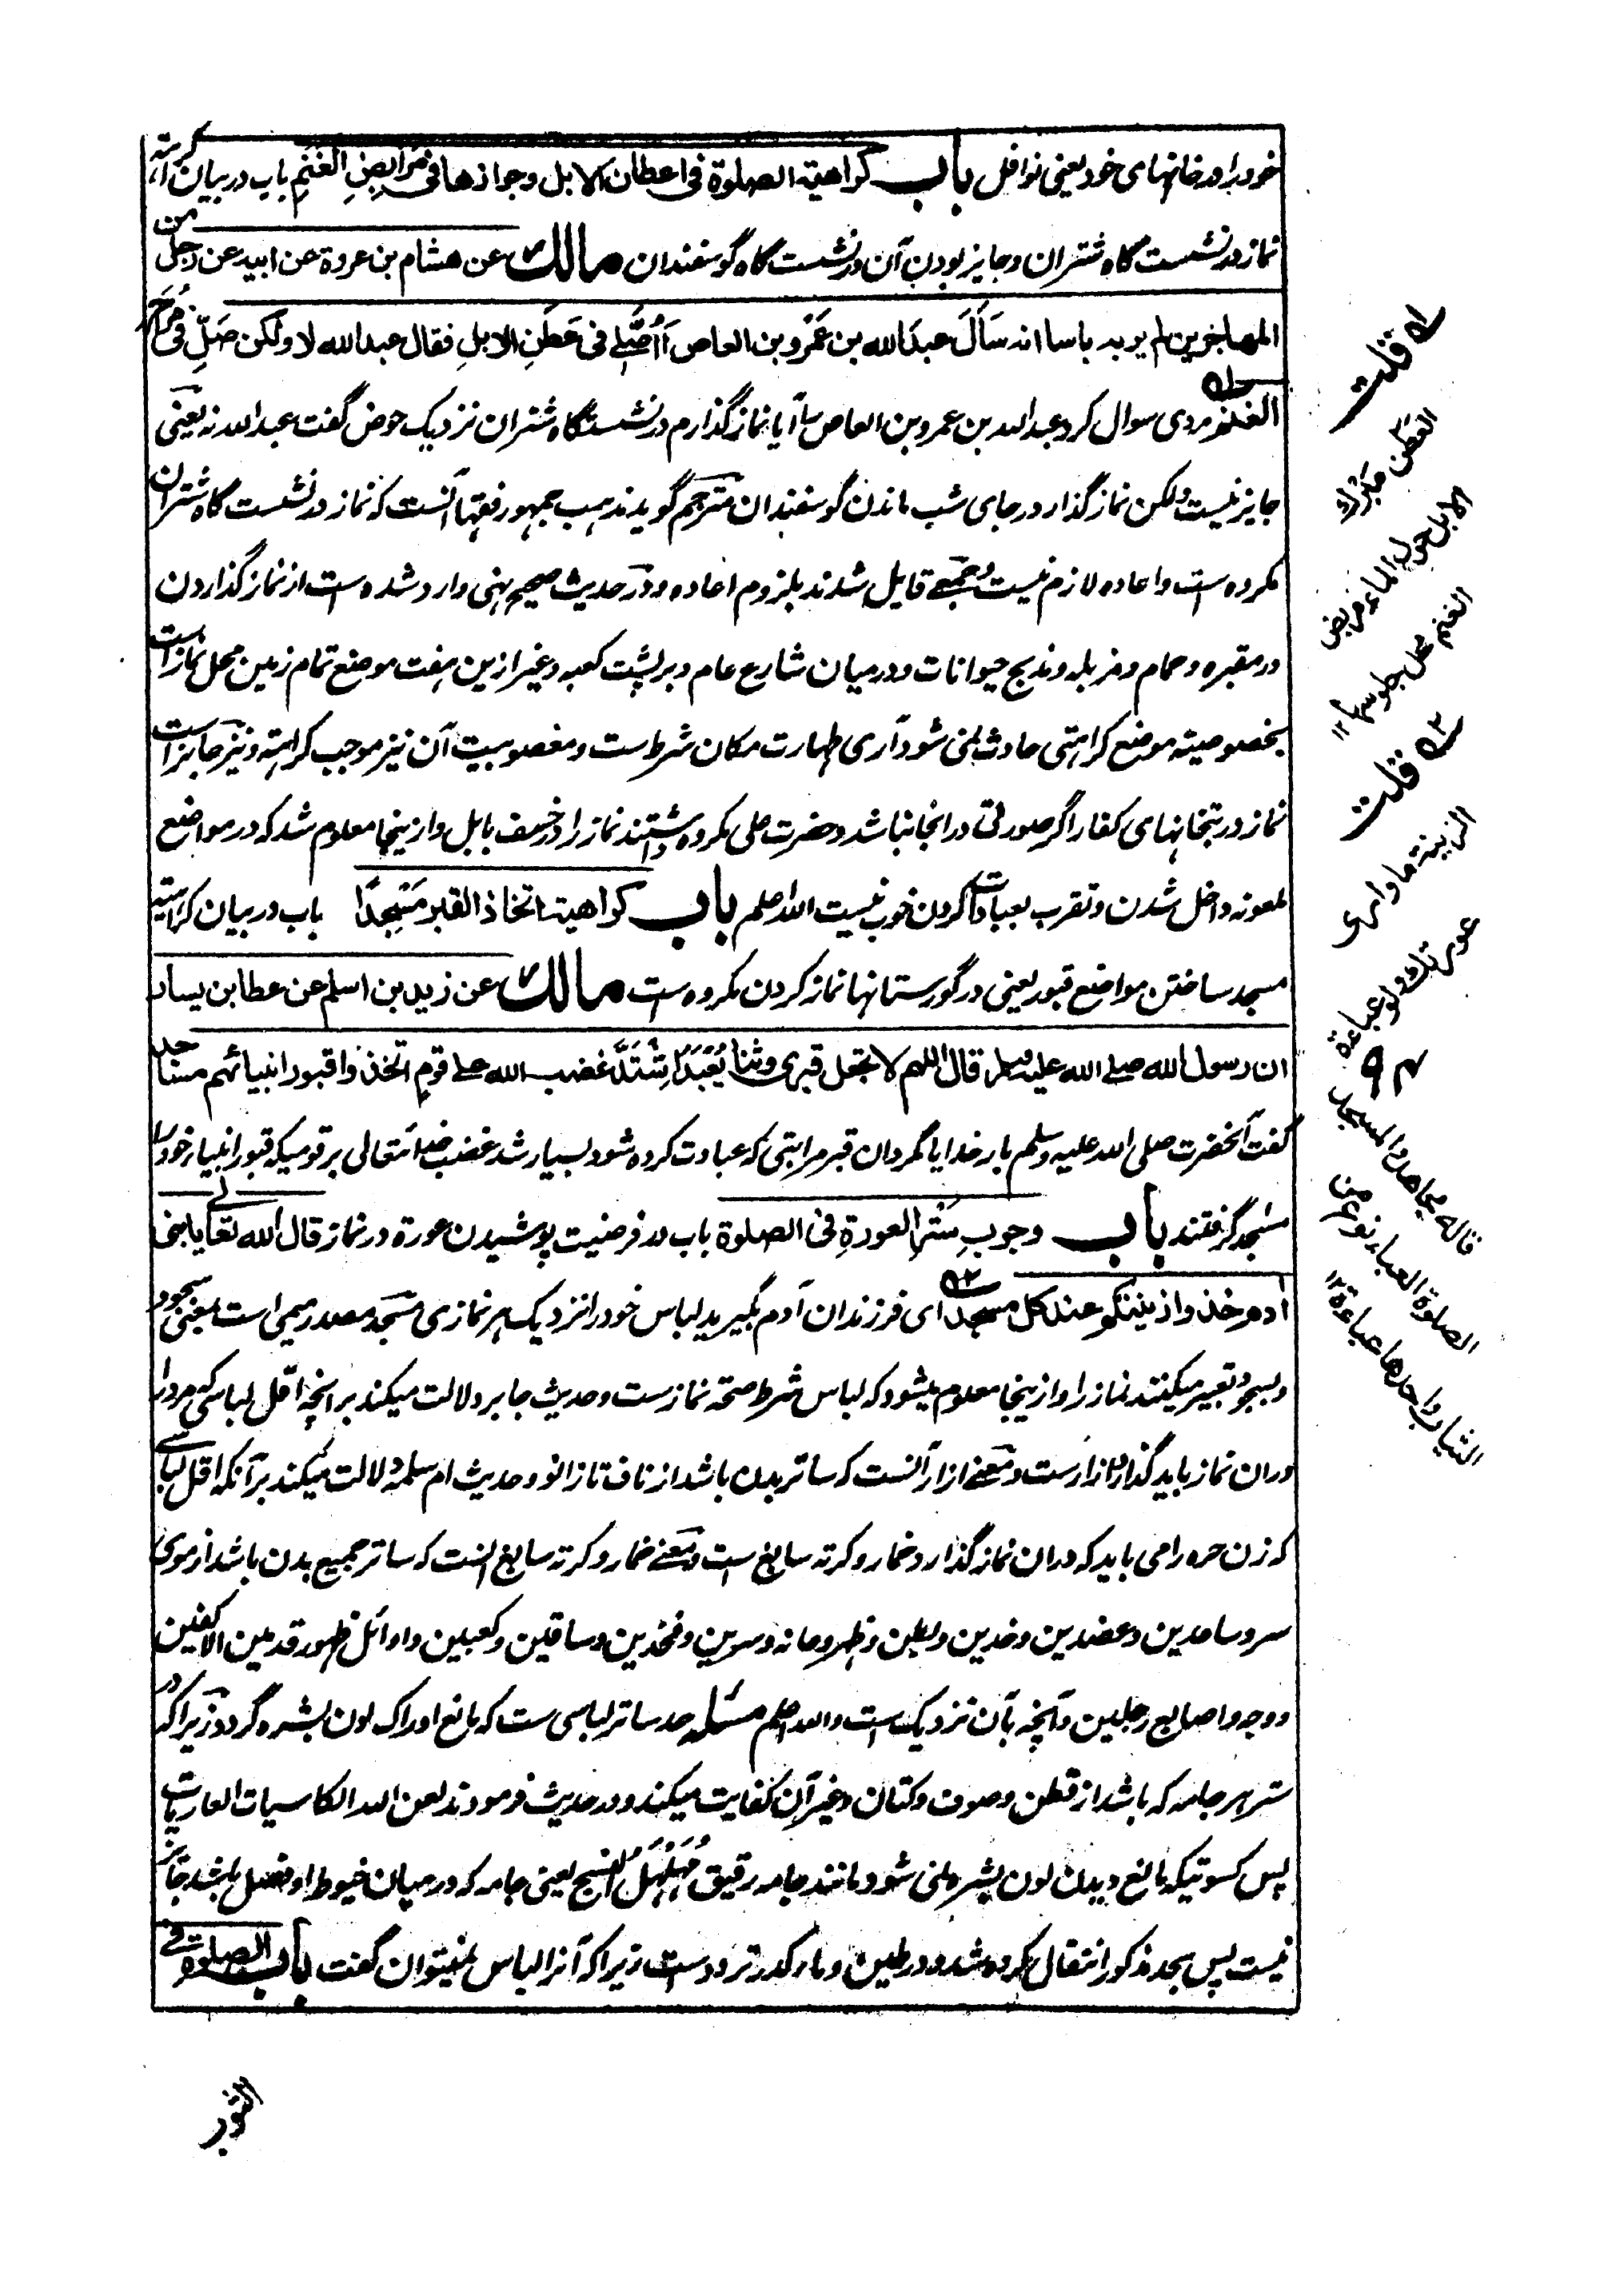 خود را در خانهای خود یعنی نوافل باب کراهیة الصلوة فی اعطان الابل وجوازها فی مرابض الغنم باب در بیان کراهیة
نماز در نشست گاه شتران و جایز بودن آن در نشست گاه گوسفندان مالك عن هشام بن عروة عن ابیه عن رجل من
المهاجرین لم یر به باسا انه سَاَلَ عبدَالله بن عَمْرو بن العاص أَاُصَلّی فی عَطَنِ الابلِ فقال عبد الله لا ولکن صَلِّ فی مُراح
الغنم مردی سوال کرد عبد الله بن عمرو بن العاص را آیا نماز گذارم در نشستگاه شتران نزدیک حوض گفت عبد الله نه یعنی
جایز نیست ولکن نماز گذار در جای شب ماندن گوسفندان مترجم گوید مذهب جمهور فقها آنست که نماز در نشست گاه شتران
مکروه ست و اعاده لازم نیست و جمعی قایل شدند بلزوم اعاده و در حدیث صحیح نهی وارد شده ست از نماز گذاردن
در مقبره و حمام و مزبله و مذبح حیوانات و در میان شارع عام و بر پشت کعبه و غیر ازین هفت موضع تمام زمین محل نماز است
بخصوصیة موضع کراهتی حادث نمی شود آری طهارت مکان شرط ست و مغصوبیت آن نیز موجب کراهة و نیز جایز است
نماز در بتخانهای کفار اگر صورتی در انجا نباشد و حضرت علی مکروه داشتند نماز را در خسف بابل و ازینجا معلوم شد که در مواضع
ملعونه داخل شدن و تقرب بعبادات کردن خوب نیست الله اعلم باب کراهیة اتخاذ القبر مَسْجِدًا باب در بیان کراهیة
مسجد ساختن مواضع قبور یعنی در گورستانها نماز کردن مکروه ست مالك عن زید بن اسلم عن عطا بن یسار
ان رسول الله صلی الله علیه وسلم قال اللهم لا تجعل قبری وثنا یُعْبَدُ اِشْتَدَّ غضب الله علی قومٍ اتخذوا قبور انبیائهم مساجد
گفت آنحضرت صلی الله علیه وسلم بار خدایا مگردان قبر مرا بتی که عبادت کرده شود بسیار شد غضب خدا تعالی بر قومیکه قبور انبیاء خود را
مسجد گرفتند باب وجوبِ سَتْرِ العورةِ فی الصلوة باب در فرضیت پوشیدن عورة در نماز قال الله تعالی یا بنی
آدم خذوا زینتکم عند کل مسجد ای فرزندان آدم بگیرید لباس خود را نزدیک هر نمازی مسجد مصدر میمی است بمعنی سجود
و بسجود تعبیر میکنند نماز را و ازینجا معلوم میشود که لباس شرط صحة نماز ست و حدیث جابر دلالت میکند بر انچه اقل لباسی که مرد را
دران نماز باید گذارد ازار ست و معنی ازار آنست که ساتر بدن باشد از ناف تا زانو و حدیث ام سلمه دلالت میکند بر آنکه اقل لباسی
که زن حره را می باید که دران نماز گذارد خمار و کرته سابغ است و معنی خمار و کرته سابغ انست که ساتر جمیع بدن باشد از موی
سر و ساعدین و عضدین و خدین و بطن و ظهر و عانه و سرین و فخذین و ساقین و کعبین و اوائل ظهور قدمین الا کفین
و وجه و اصابع رجلین و آنچه بآن نزدیک ست والله اعلم مسئله حد ساتر لباسی ست که مانع ادراک لون بشره گردد زیرا که در
ستر هر جامه که باشد از قطن و صوف و کتان و غیر آن کفایت میکند و در حدیث فرمودند لعن الله الکاسیات العاریات
پس کسوتیکه مانع دیدن لون بشره نمی شود مانند جامه رقیق مُهَلْهَل النسج یعنی جامه که در میان خیوط او فصل باشد جائز
نیست پس بحد مذکور انتقال کرده شد و در طین و ماء کدر تردد ست زیرا که آنرا لباس نمیتوان گفت باب الصلوة فی
الثوب
ف۱ قلت
العطن مَبْرَك
الابل حول الماء مربض
الغنم محل جلوسها ۱۲
ف۲ قلت
الزینة ما واری
عورتك ولو عباءة
ف۳
قاله مجاهد والمسجد
الصلوة العباء نوع من
الثیاب واحدها عباءة ۱۲